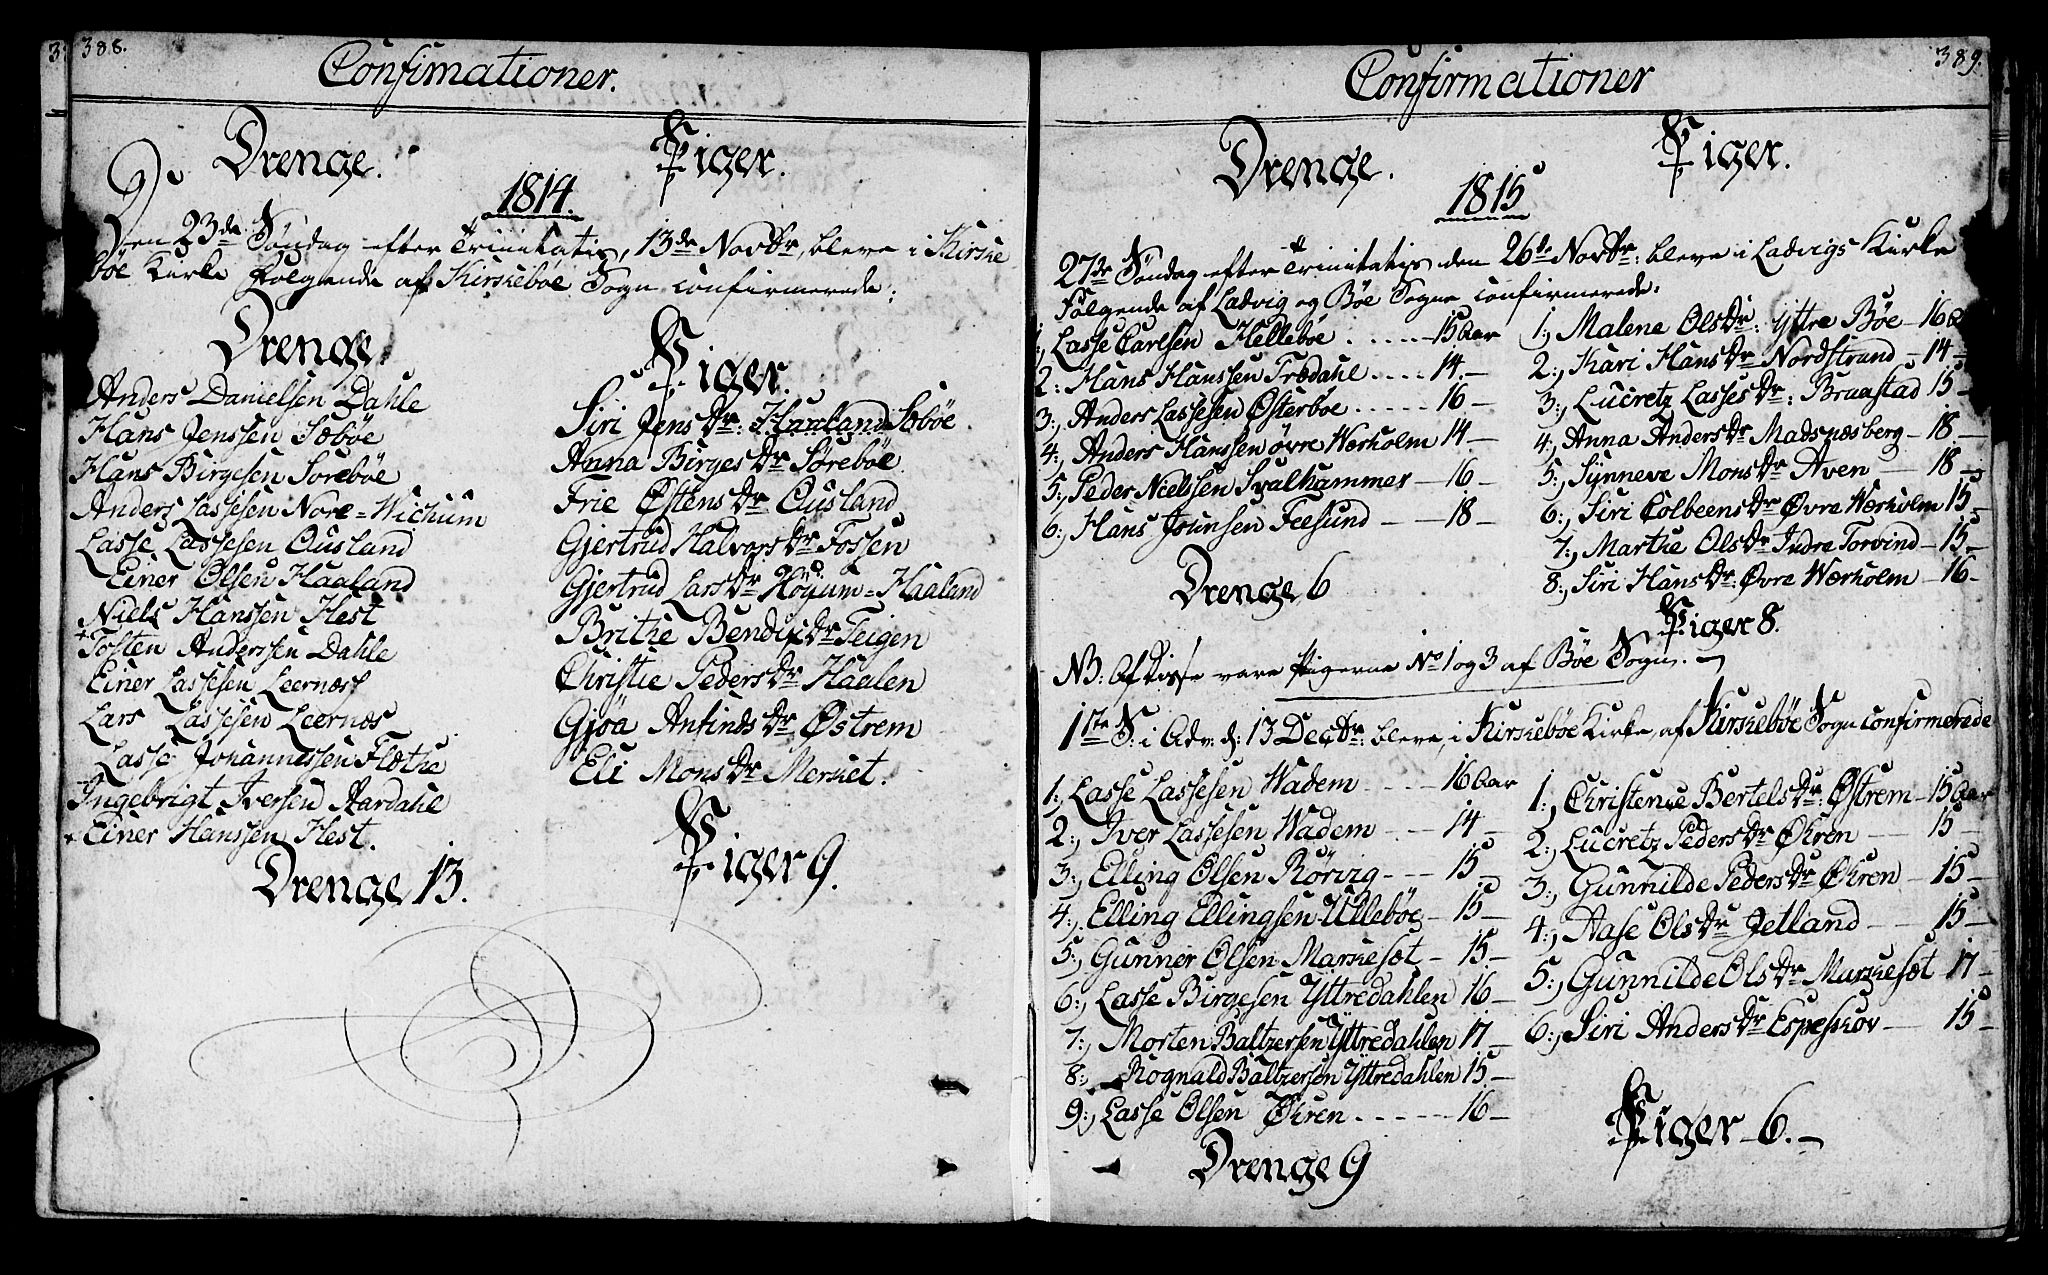 388.
Confirmationer.
Drenge. Piger.
1814.
Den 23de Søndag efter Trinitatis, 13de Novbr, bleve i Kirske
bøe Kirke Følgende af Kirskebøe Sogn confirmerede:
Drenge
Anders Danielsen Dahle
Hans Jenssen Sæbøe
Hans Birgesen Sørebøe
Anders Lassesen Nore=Wichum
Lasse Lassesen Ousland
Einer Olsen Haaland
Niels Hanssen Hest
+ Tosten Anderssen Dahle
Einer Lassesen Leernæs
Lars Lassesen Leernæs
Lasse Johannessen Flæthe
Ingebrigt Iversen Aardahl
+ Einer Hanssen Hest.
Drenge 13.
Piger.
Siri Jens Dr: Haaland Sæbøe.
Anna Birges Dr Sørebøe.
Frie Østens Dr Ousland
Gjertrud Halvors Dr Fossen
Gjertrud Lars Dr Høyum=Haaland
Brithe Bendix Dr Teigen
Christie Peders Dr Haalen
Gjøa Anfinds Dr Østrem
Eli Mons Dr Merket.
Piger 9.
389.
Confirmationer
Drenge. Piger.
1815
27de Søndag efter Trinitatis den 26de Novbr: bleve i Ladvigs Kirke
Følgende af Ladvig og Bøe Sogne confirmerede:
1:, Lasse Carlsen Hellebøe ..... 15 Aar
2:, Hans Hanssen Trædahl .... 14. –
3:, Anders Lassesen Østerboe ..... 16 –
4:, Anders Hanssen øvre Werholm 14 –
5:, Peder Nielssen Svalhammer – 16 –
6:, Hans Jounsen Feesund – – 18 –
Drenge 6
1:, Malene Ols Dr: Yttre Bøe – 16 A
2:, Kari Hans Dr Nordstrand – 14 –
3:, Lucretz Lasses Dr: Braastad 15 –
4:, Anna Anders Dr Madsnæsberg – 18. –
5:, Synneve Mons Dr Aven – 18 –
6:, Siri Colbeens Dr Øvre Werholm 15 –
7:, Marthe Ols Dr Indre Torvind – 15 –
8:, Siri Hans Dr: Øvre Werholm – 16 –
Piger 8.
NB: Af disse vare Pigerne No 1 og 3 af Bøe Sogn. –
1ste S: i Adv: d: 13 Decbr: bleve, i Kirskebøe Kirke, af Kirskebøe Sogn confirmerede
1:, Lasse Lassesen Wadem – – – 16 Aar
2:, Iver Lassesen Wadem – – 14 –
3:, Elling Olsen Rørvig – – – 15 –
4:, Elling Ellingsen Ullebøe – 15 –
5:, Gunner Olsen Marskesæt – 15 –
6:, Lasse Birgesen Yttredahlen 16 –
7:, Morten Baltzersen Yttredahlen 17 –
8:, Rognald Baltzersen Yttredahlen 15. –
9:, Lasse Olsen Økren – – – – 16 –
Drenge 9
1:, Christence Bertels Dr: Østrem – 15 Aar
2:, Lucretz Peders Dr Økren – – 15 –
3:, Gunnilde Peders Dr Økren – 15 –
4:, Aase Ols Dr Jetland – – 15 –
5:, Gunnilde Ols Dr Marskesæt 17 –
6:, Siri Anders Dr Espeskov – 15 –
Piger 6. –